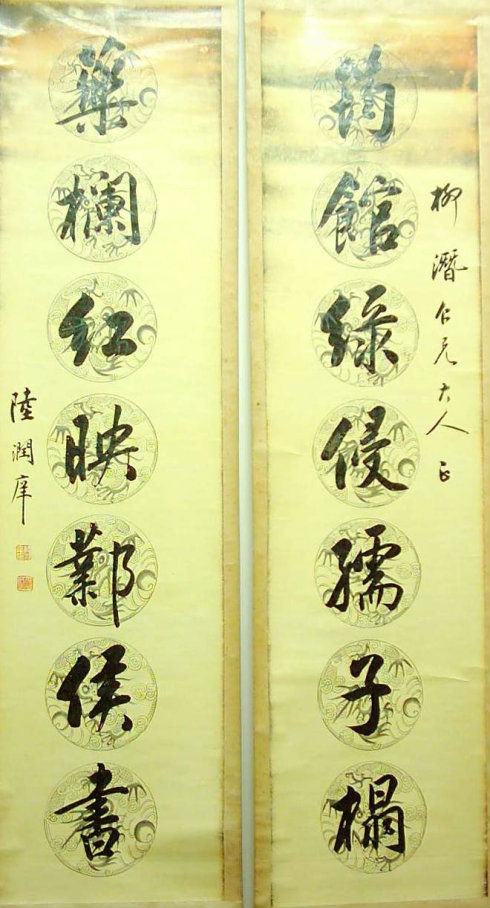 柳潛仁兄大人正
筠館綠侵孺子榻
藥欄紅映鄴侯書
陸潤庠